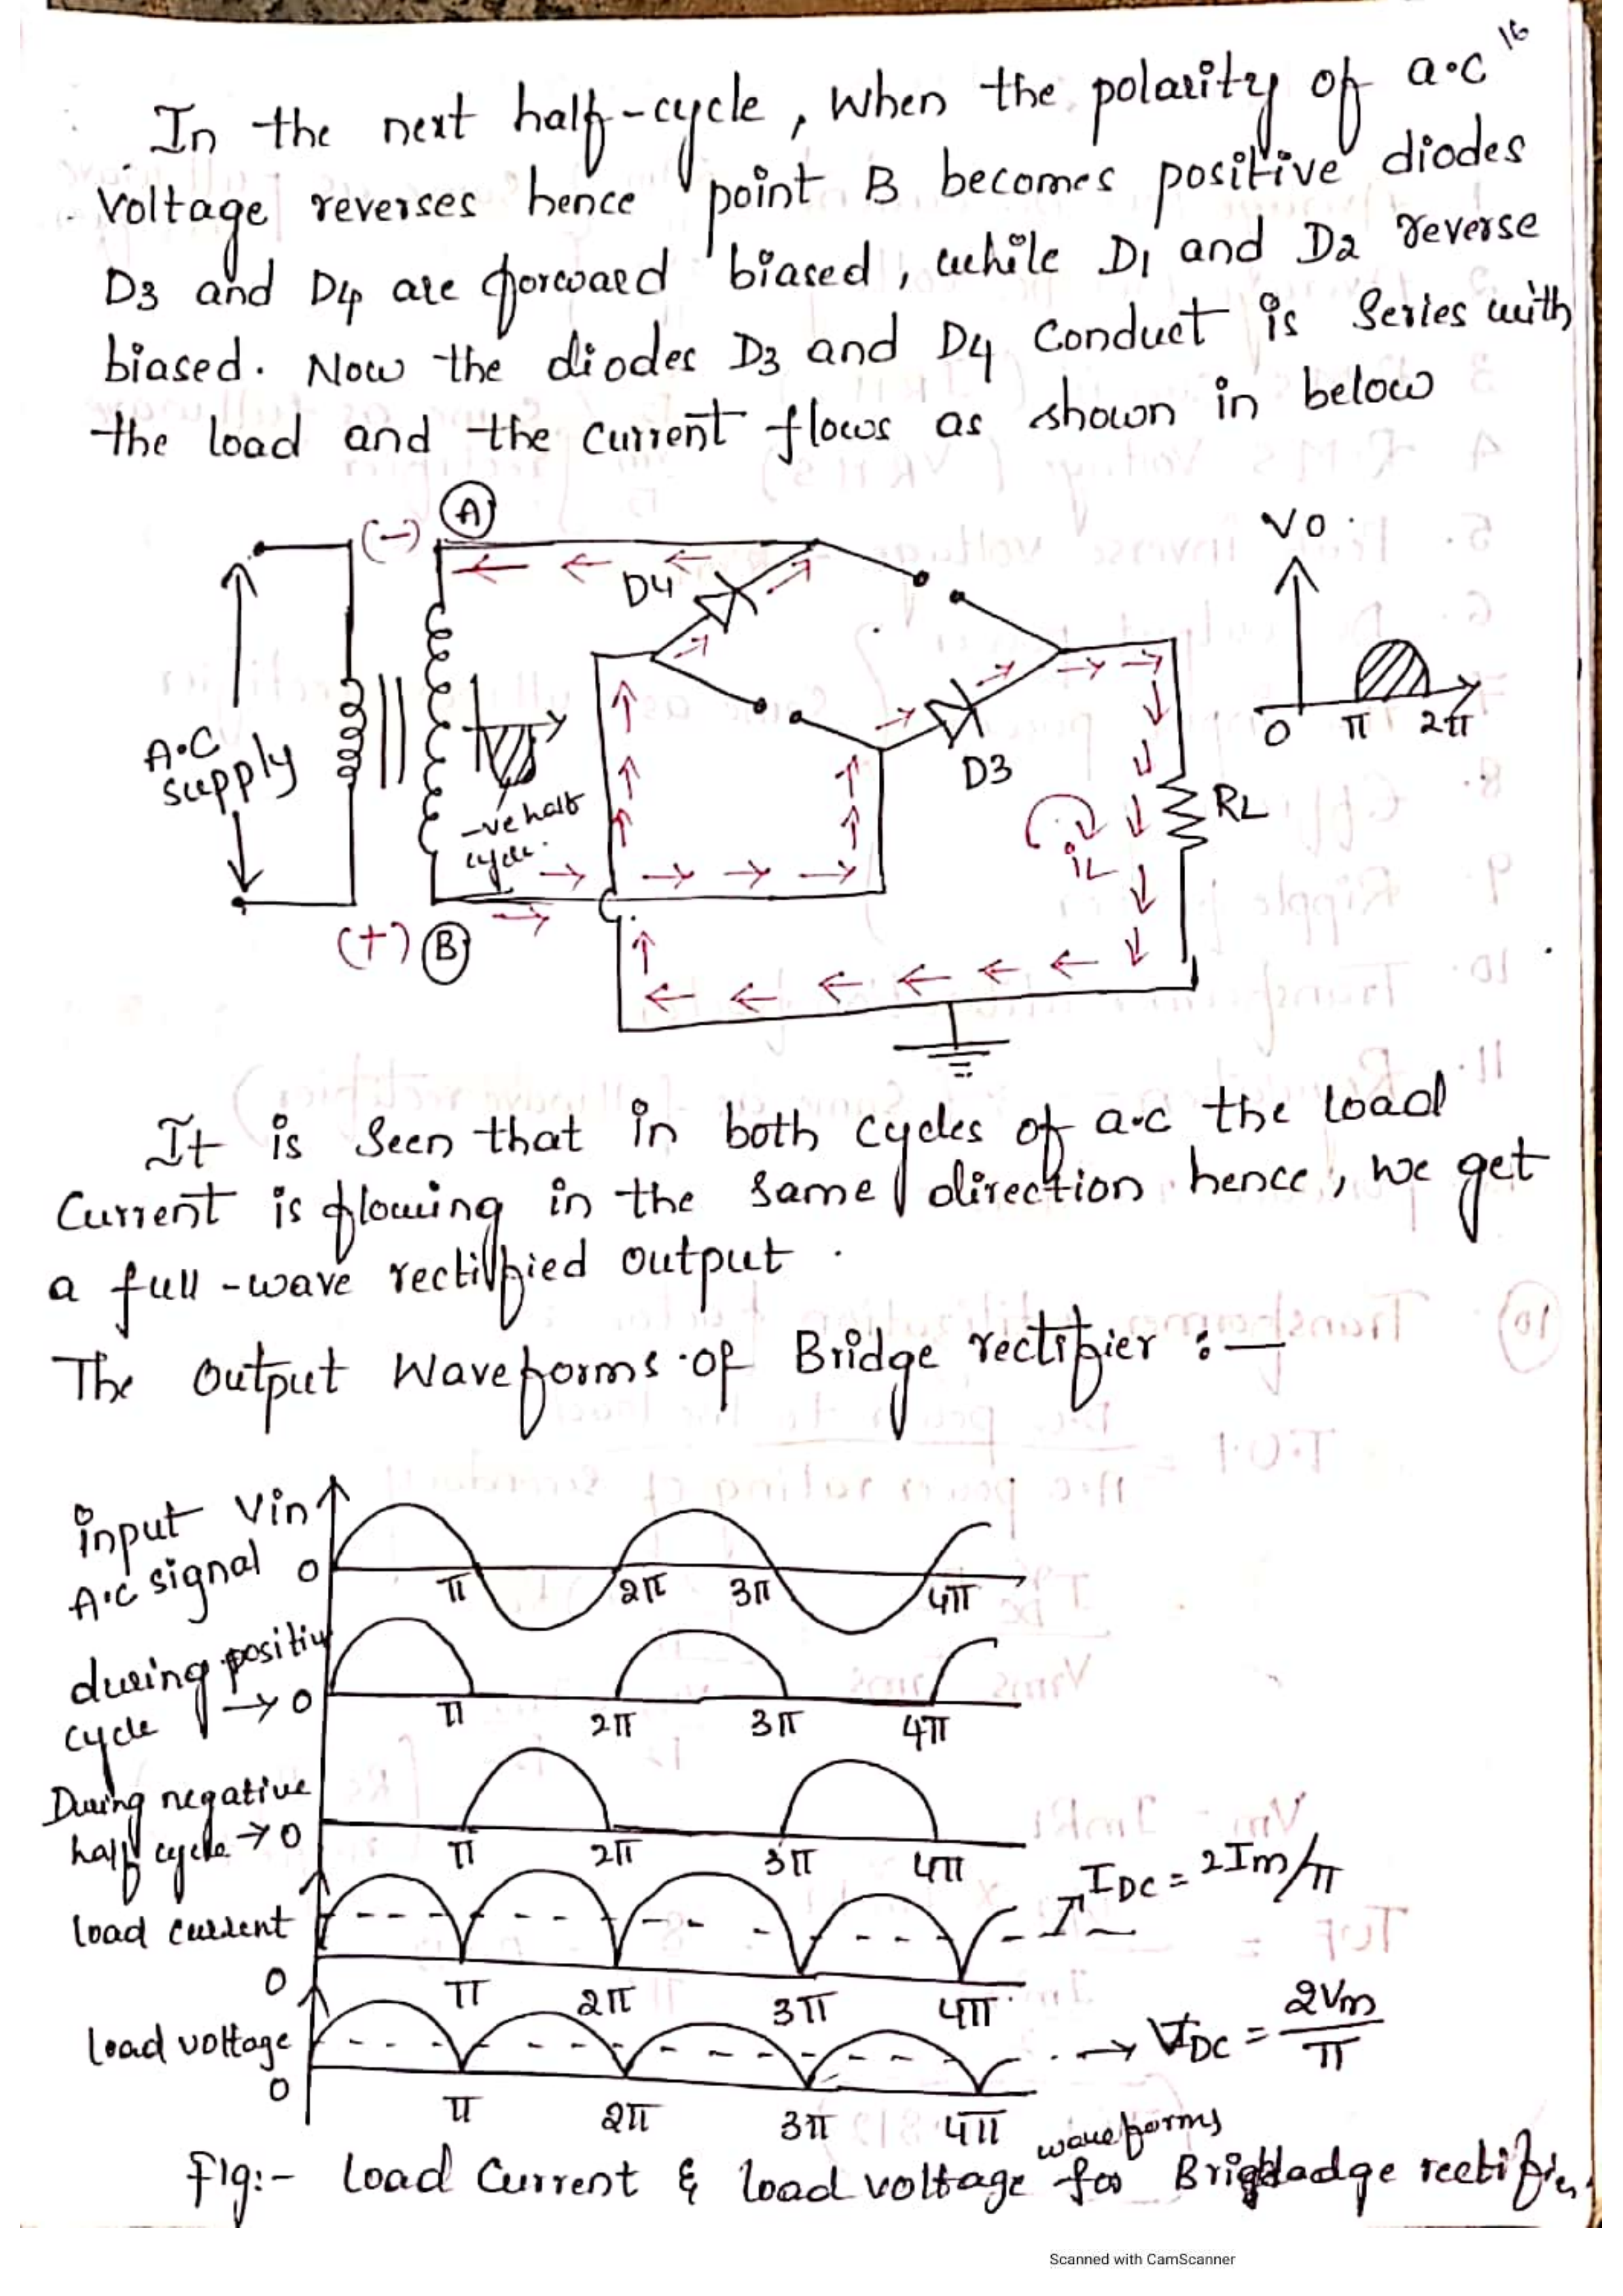 16
In the next half-cycle, when the polarity of a.c
Voltage reverses hence point B becomes positive diodes
D3 and D4 are forward biased, while D1 and D2 reverse
biased. Now the diodes D3 and D4 Conduct is Series with
the load and the current flows as shown in below
(-) A
D4
Vo
0 π 2π
A.C
supply
-ve half
cycle.
D3
RL
iL
(+) B
It is seen that in both cycles of a.c the load
Current is flowing in the same direction hence, we get
a full-wave rectified output.
The output Waveforms of Bridge rectifier :-
input Vin
A.C signal 0
π 2π 3π 4π
during positiv
cycle → 0
π 2π 3π 4π
During negative
half cycle → 0
π 2π 3π 4π
load current
IDC = 2Im/π
0
π 2π 3π 4π
load voltage
→ VDC = 2Vm/π
0
π 2π 3π 4π
waveforms
Fig:- load Current & load voltage for rectifier
Scanned with CamScanner